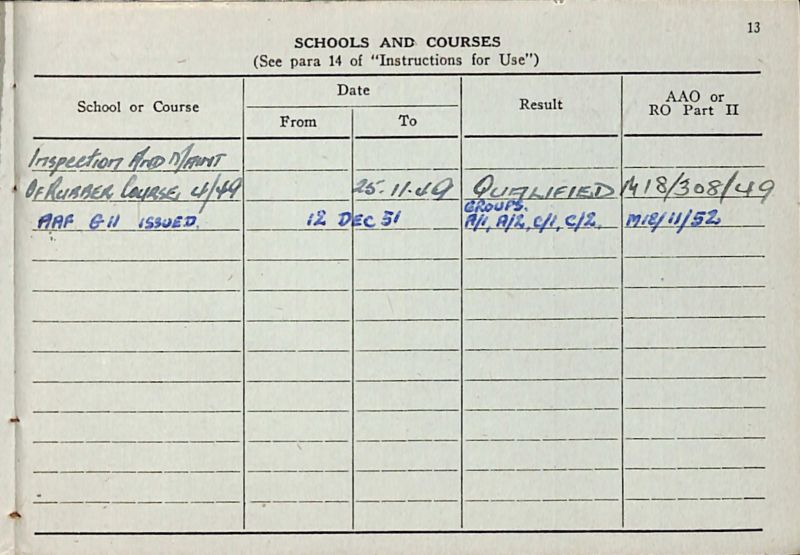 13
SCHOOLS AND COURSES
(See para 14 of "Instructions for Use")
School or Course
Date
From
To
Result
AAO or
RO Part II
Inspection And Maint
Of Rubber Course, 4/49 25.11.49 QUALIFIED M18/308/49
AAF G11 ISSUED. 12 DEC 51 GROUPS.
A/1, A/2, C/1, C/2. M18/11/52